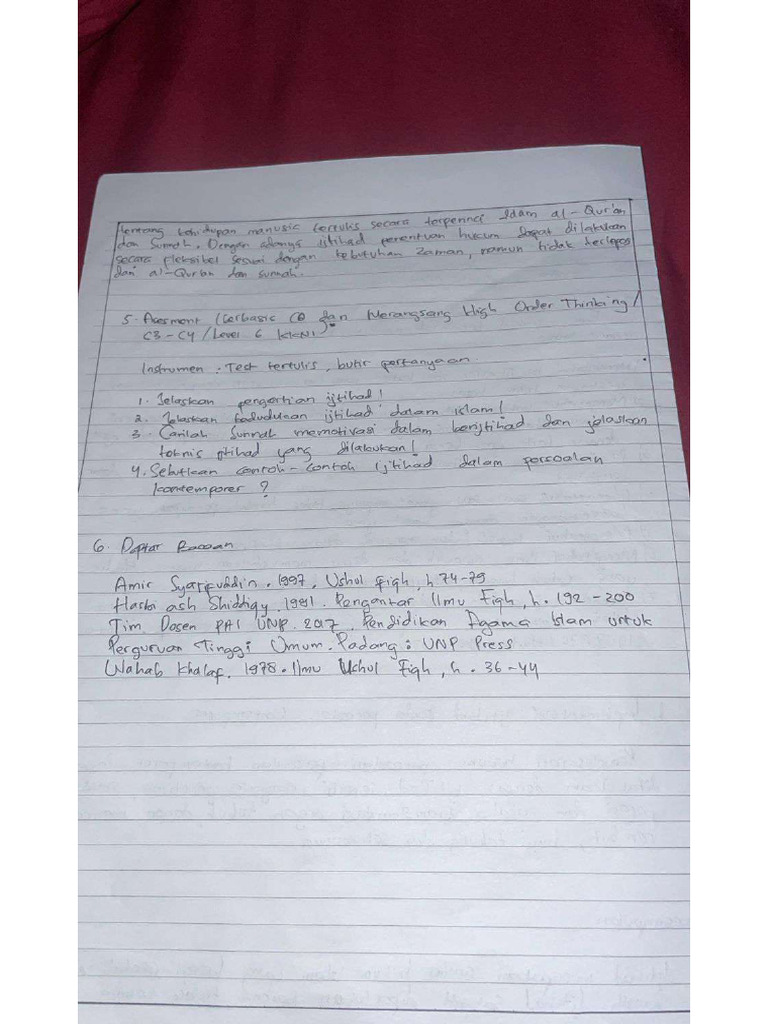 tentang kehidupan manusia tertulis secara terperinci ddam al-Qur'an
dan Sunnah. Dengan adanya ijtihad penentuan hukum dapat dilakukan
secara fleksibel sesuai dengan kebutuhan zaman, namun tidak terlepas
dari al-Qur'an dan sunnah.
5. Acesment (berbasic CO dan Merangsang High Order Thinking /
C3-C4 / Level 6 KKNI)
Instrumen : Test tertulis, butir pertanyaan
1. Jelaskan pengertian ijtihad!
2. Jelaskan kedudukan ijtihad dalam islam!
3. Carilah Sunnah memotivasi dalam berijtihad dan jelaskan
teknis ijtihad yang dilakukan!
4. Sebutkan contoh-contoh ijtihad dalam persoalan
kontemporer ?
6. Daptar Bacaan
Amir Syarifuddin. 1997. Ushul fiqh, h 74-79
Hasbi ash Shiddiqy. 1981. Pengantar Ilmu Fiqh, h. 192 - 200
Tim Dosen PAI UNP. 2017. Pendidikan Agama Islam untuk
Perguruan Tinggi Umum. Padang : UNP Press
Wahab Khalaf. 1978. Ilmu Uchul Fiqh, h. 36-44